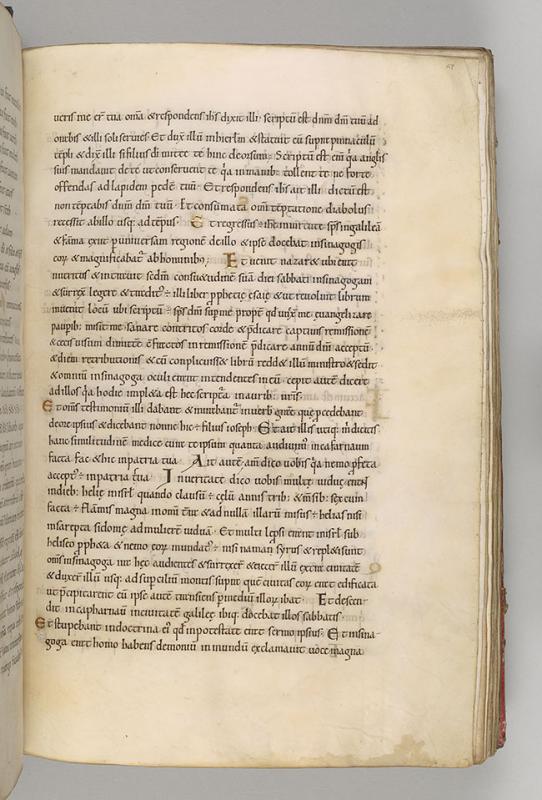 ueris me erт tua om̄a &respondens ihs dixit illi · scriptū est dnm dm̄ tuū ad
orabis &illi soli seruies Et dux̄ illū inhierl̄m &statuit eū suprat pinnaculū
tēpli &dix̄ illi sifilius dī mitte te hinc deorsum · Scriptū est eni qa angł̄is
suis mandauit dete utconseruent te qa inmanib; tollent te ne forte
offendas ad lapidem pedē tuū · Et respondens ihs ait illi dictū est
non tēptabis dnm dm̄ tuū · Et consūmata omī tēptatione diabolus
recessit abillo usq; ad tēpus · Et regressus ÷ ihs inuirtute sps̄ ingalileā
& fama exiit p uniuersam regionē deillo & ipse docebat insinagogis
eoꝝ & magnificabat̄ abhominib; · Et uenit nazareth ubi erat
nutritus & intrauit scdm̄ consuetudinē suā die sabbati insinagogam
& surrex̄ legere & traditus ÷ illi liber pphetię esaię & ut reuoluit librum
inuenit locū ubi scriptū ÷ sps̄ dnī sup me propt̄ qd unx̄ me euangelizare
paupib; misit me sanare contritos corde & p̄dicare captiuis remissionē
& cecis uisum dimittē c̄fractos in remissionē p̄dicare annū dnī acceptū
& diem retributionis & cū complicuiss& librū redd& illi ministro & sedit
& omniū insinagoga oculi erant intendentes in eū cepit autē dicere
ad illos qa hodie impl&a est hec scriptra in aurib; uris
Et om̄s testimoniū illi dabant & mirabant̄ inuerb gratię quę pcedebant
deore ipsius & dicebant nonne hic ÷ filius ioseph Et ait illis utiq; m̄ dicetis
hanc similitudinē medice cura te ipsum quanta audiuim̄ in cafarnaum
facta fac & hic inpatria tua Ait autē am̄ dico uobis qa nemo p̄feta
accept᷒ ÷ inpatria sua Inueritate dico uobis multę uiduę erant
indieb; helię inisrl̄ quando clausū ÷ cęlū annis trib; & m̄sib; sex cum
facta ÷ fames magna inomi terra & ad nullā illarū misus ÷ helias nisi
insarepta sidonię ad mulierē uiduā · Et multi lep̄si erant inisrl̄ sub
heliseo pph&a & nemo eoꝝ mundat᷒ ÷ nisi naman syrus & repl&i sunt
om̄s insinagoga ira hęc audientes & surrexer̄ & eiecer̄ illū extra ciuitatē
& duxer̄ illū usq; ad supciliū montis supra quē ciuitas eoꝝ erat edificata
ut p̄cipitarent eū ipse autē transiens p mediū illoꝝ ibat · Et descen
dit in capharnaū inciuitatē galileę ibiq; docebat illos sabbatis
Et stupebant indoctrina ei᷒ qđ inpotestate erat sermo ipsius · Et insina
goga erat homo habens demoniū inmundū exclamauit uoce magna